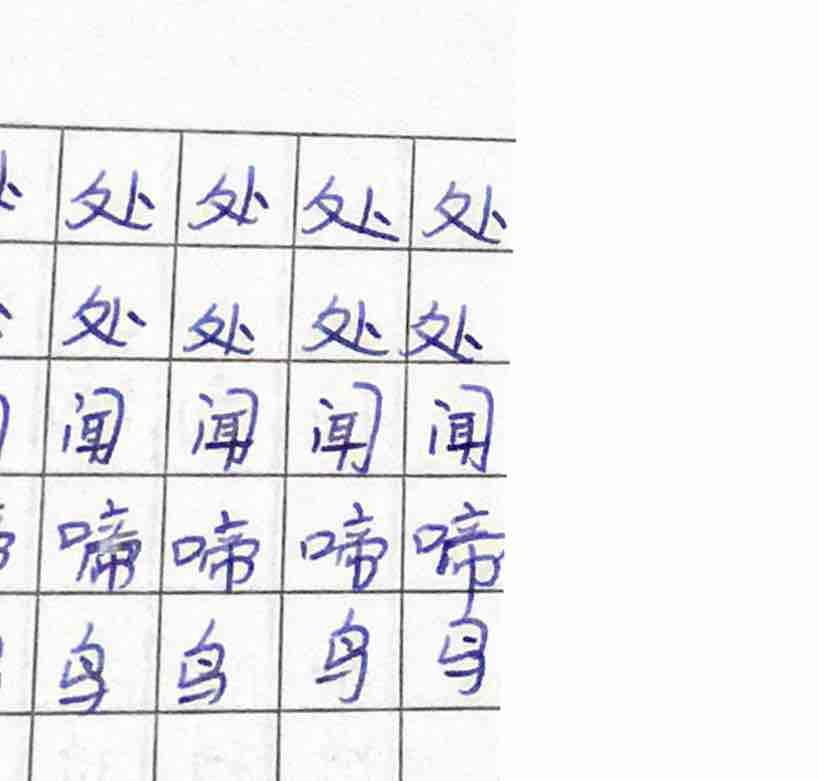 处 处 处 处
处 处 处 处
闻 闻 闻 闻
啼 啼 啼 啼
鸟 鸟 鸟 鸟